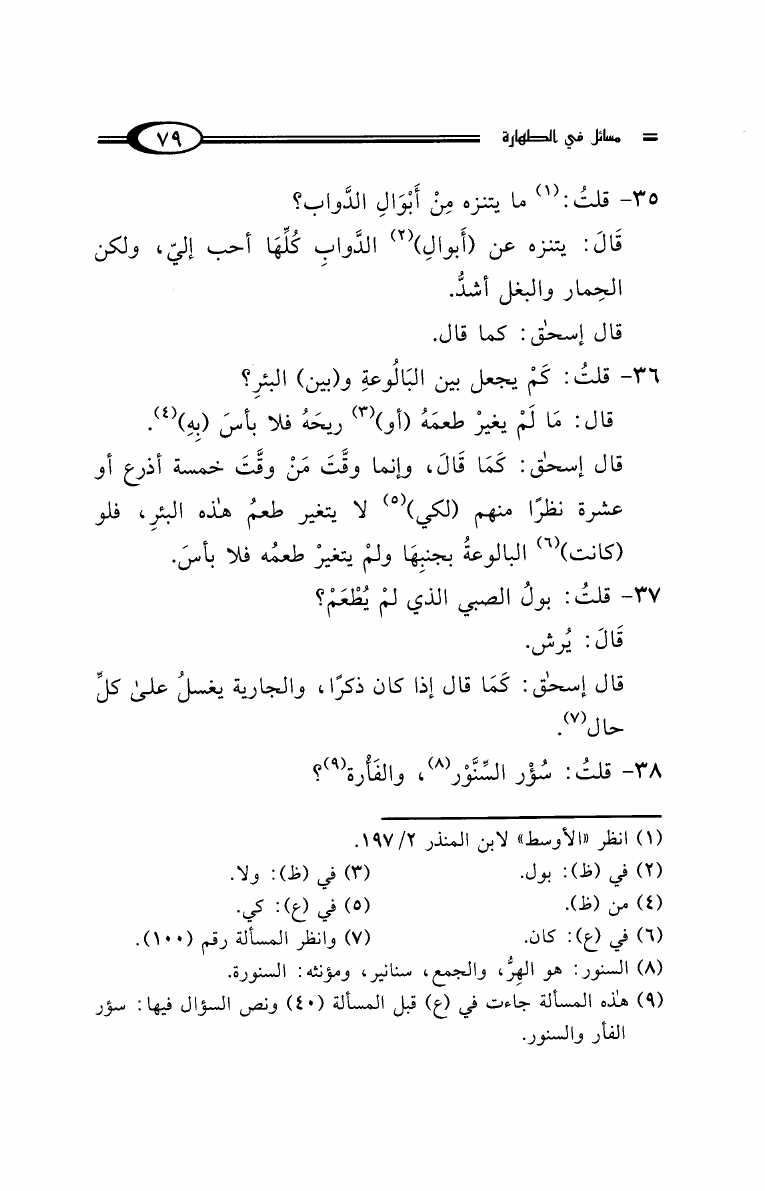 = مسائل في الطهارة ٧٩
٣٥- قلتُ:(١) ما يتنزه مِنْ أَبْوَالِ الدَّواب؟
قَالَ: يتنزه عن (أَبوالِ)(٢) الدَّوابِ كُلِّهَا أحب إليّ، ولكن
الحِمار والبغل أشدُّ.
قال إسحٰق: كما قال.
٣٦- قلتُ: كَمْ يجعل بين البَالُوعةِ و(بين) البئرِ؟
قال: مَا لَمْ يغيرْ طعمَهُ (أو)(٣) ريحَهُ فلا بأسَ (بِهِ)(٤).
قال إسحٰق: كَمَا قَالَ، وإنما وقَّتَ مَنْ وقَّتَ خمسة أذرع أو
عشرة نظرًا منهم (لكي)(٥) لا يتغير طعمُ هٰذه البئرِ، فلو
(كانت)(٦) البالوعةُ بجنبِهَا ولمْ يتغيرْ طعمُه فلا بأسَ.
٣٧- قلتُ: بولُ الصبي الذي لمْ يُطْعَمْ؟
قَالَ: يُرش.
قال إسحٰق: كَمَا قال إذا كان ذكرًا، والجارية يغسلُ علىٰ كلِّ
حال(٧).
٣٨- قلتُ: سُؤْر السِّنَّوْر(٨)، والفَأْرة(٩)؟
(١) انظر «الأوسط» لابن المنذر ٢/ ١٩٧.
(٢) في (ظ): بول. (٣) في (ظ): ولا.
(٤) من (ظ). (٥) في (ع): كي.
(٦) في (ع): كان. (٧) وانظر المسألة رقم (١٠٠).
(٨) السنور: هو الهِرُّ، والجمع، سنانير، ومؤنثه: السنورة.
(٩) هٰذه المسألة جاءت في (ع) قبل المسألة (٤٠) ونص السؤال فيها: سؤر
الفأر والسنور.